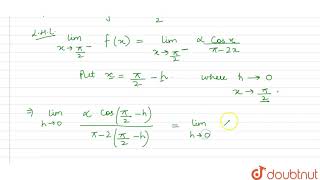 L.H.L. lim x→π/2⁻ f(x) = lim x→π/2⁻ α cos x / π-2x
Put x = π/2 - h where h → 0
x → π/2.
⇒ lim h→0 α cos(π/2 - h) / π-2(π/2 - h) = lim h→0
doubtnut